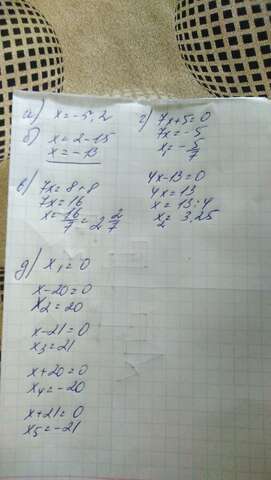 а) x = -5,2
б) x = 2-15
x = -13
в) 7x = 8+8
7x = 16
x = 16/7 = 2 2/7
г) 7x+5=0
7x = -5
x₁ = -5/7
4x-13=0
4x = 13
x = 13:4
x₂ = 3,25
д) x₁ = 0
x-20=0
x₂ = 20
x-21=0
x₃ = 21
x+20=0
x₄ = -20
x+21=0
x₅ = -21